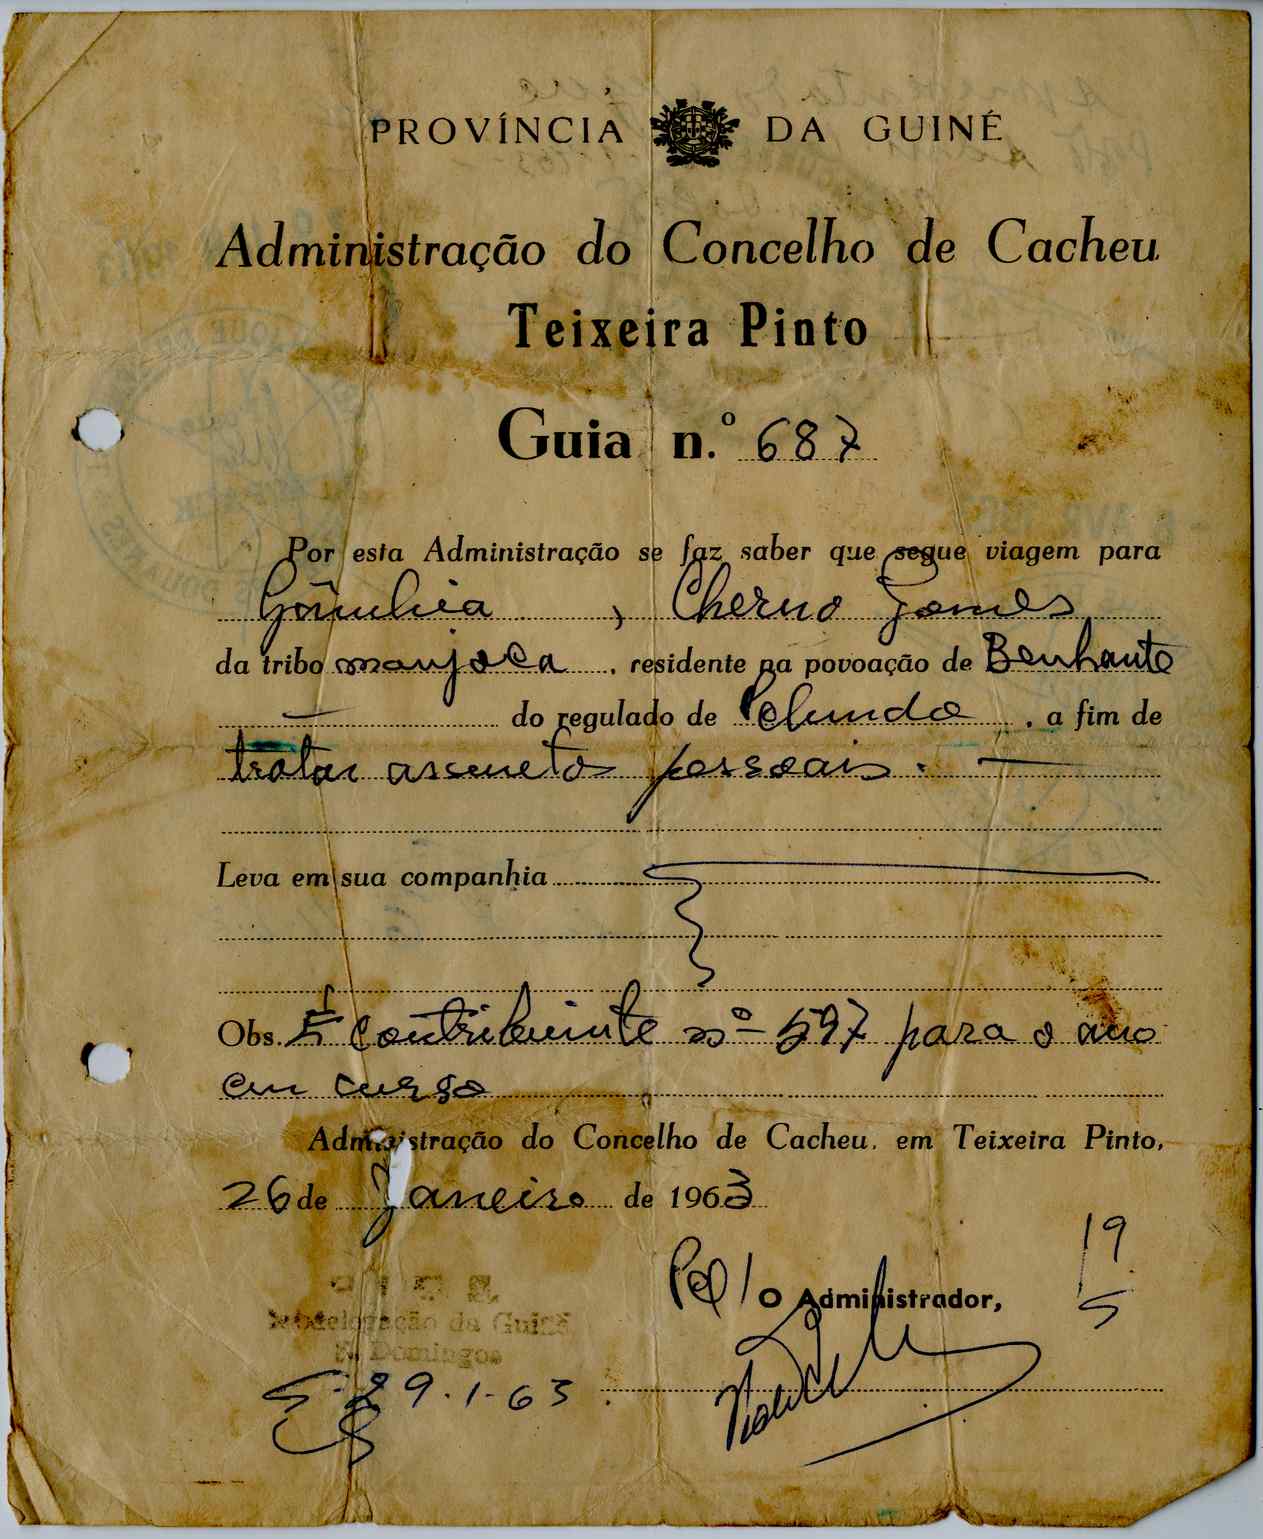 PROVÍNCIA DA GUINÉ
Administração do Concelho de Cacheu
Teixeira Pinto
Guia n.º 687
Por esta Administração se faz saber que segue viagem para
Gâmbia, Cherno Gomes
da tribo manjaca, residente na povoação de Benhante
— do regulado de Pelundo, a fim de
tratar assuntos pessoais. —
Leva em sua companhia
Obs. É contribuinte nº 597 para o ano
em curso
Administração do Concelho de Cacheu, em Teixeira Pinto,
26 de Janeiro de 1963
19
5
Pel/O Administrador,
Subdelegação da Guiné
S. Domingos
29.1.63